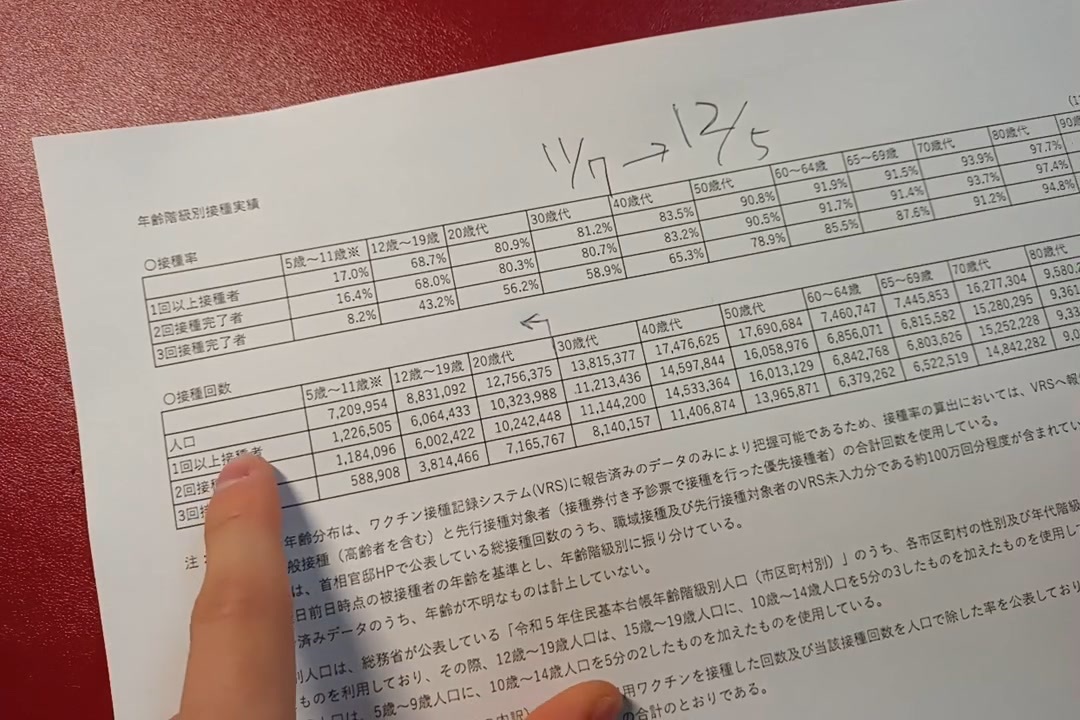 11/7 → 12/5
年齢階級別接種実績
〇接種率
5歳～11歳※ 12歳～19歳 20歳代 30歳代 40歳代 50歳代 60～64歳 65～69歳 70歳代 80歳代
1回以上接種者 17.0% 68.7% 80.9% 81.2% 83.5% 90.8% 91.9% 91.5% 93.9% 97.7%
2回接種完了者 16.4% 68.0% 80.3% 80.7% 83.2% 90.5% 91.7% 91.4% 93.7% 97.4%
3回接種完了者 8.2% 43.2% 56.2% 58.9% 65.3% 78.9% 85.5% 87.6% 91.2% 94.8%
〇接種回数
5歳～11歳※ 12歳～19歳 20歳代 30歳代 40歳代 50歳代 60～64歳 65～69歳 70歳代 80歳代
人口 7,209,954 8,831,092 12,756,375 13,815,377 17,476,625 17,690,684 7,460,747 7,445,853 16,277,304
1回以上接種者 1,226,505 6,064,433 10,323,988 11,213,436 14,597,844 16,058,976 6,856,071 6,815,582 15,280,295
2回接 1,184,096 6,002,422 10,242,448 11,144,200 14,533,364 16,013,129 6,842,768 6,803,626 15,252,228
3回接 588,908 3,814,466 7,165,767 8,140,157 11,406,874 13,965,871 6,379,262 6,522,519 14,842,282
注 年齢分布は、ワクチン接種記録システム(VRS)に報告済みのデータのみにより把握可能であるため、接種率の算出においては、VRSへ報告
般接種（高齢者を含む）と先行接種対象者（接種券付き予診票で接種を行った優先接種者）の合計回数を使用している。
は、首相官邸HPで公表している総接種回数のうち、職域接種及び先行接種対象者のVRS未入力分である約100万回分程度が含まれてい
日前日時点の被接種者の年齢を基準とし、年齢階級別に振り分けている。
済みデータのうち、年齢が不明なものは計上していない。
別人口は、総務省が公表している「令和５年住民基本台帳年齢階級別人口（市区町村別）」のうち、各市区町村の性別及び年代階級
ものを利用しており、その際、12歳～19歳人口は、15歳～19歳人口に、10歳～14歳人口を5分の3したものを加えたものを使用し
人口は、5歳～9歳人口に、10歳～14歳人口を5分の2したものを加えたものを使用している。
用ワクチンを接種した回数及び当該接種回数を人口で除した率を公表しており
の合計のとおりである。